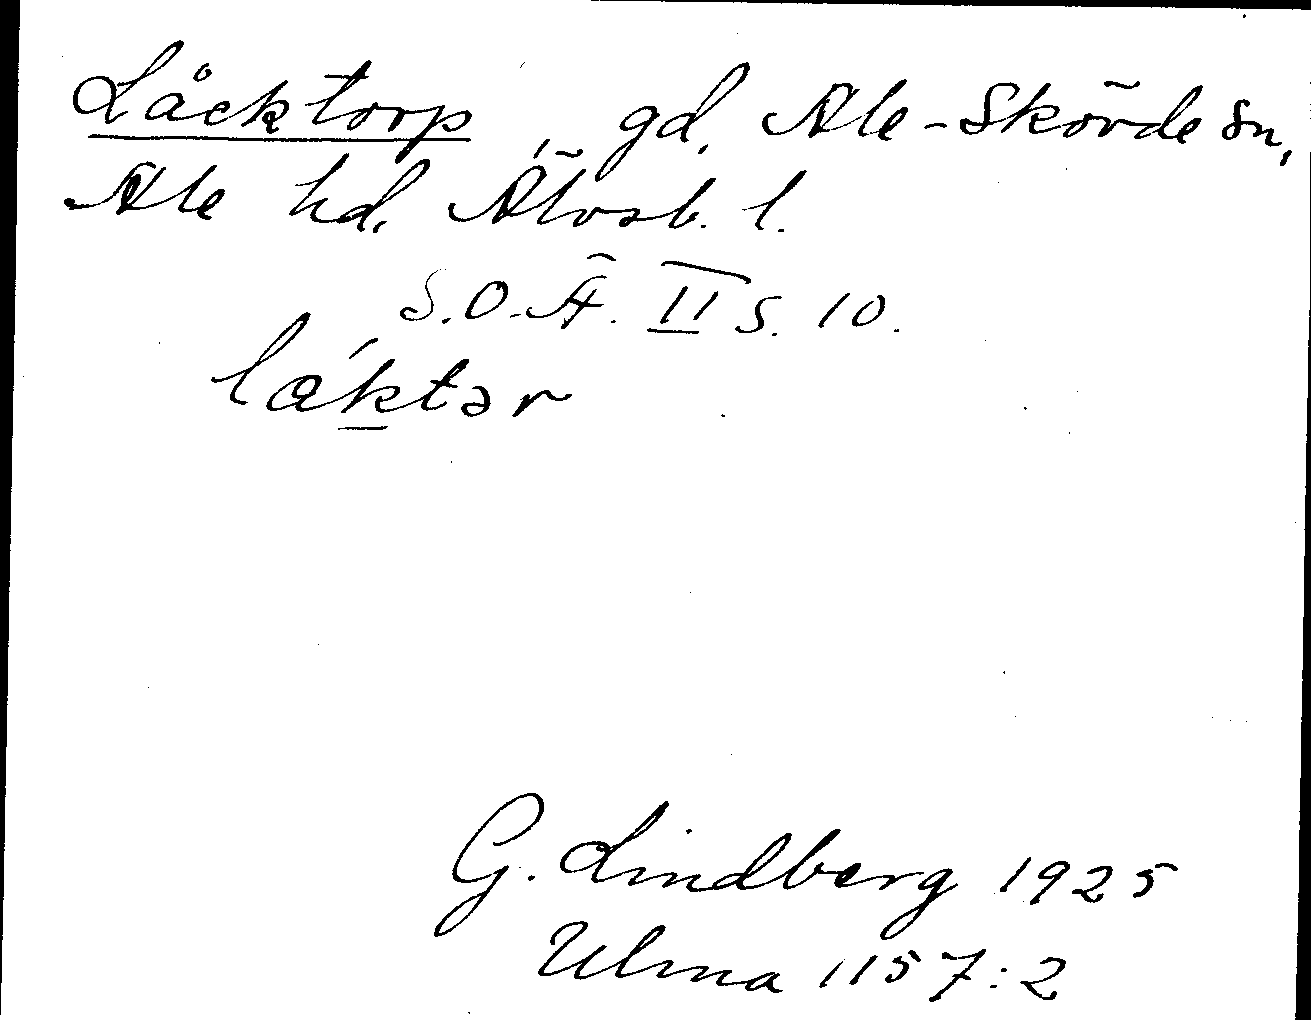 Låcktorp, gd, Ale-Skövde sn,
Ale hd. Älvsb. l.
S.O.Ä. II s. 10.
lǽktər
G. Lindberg 1925
Ulma 1157:2